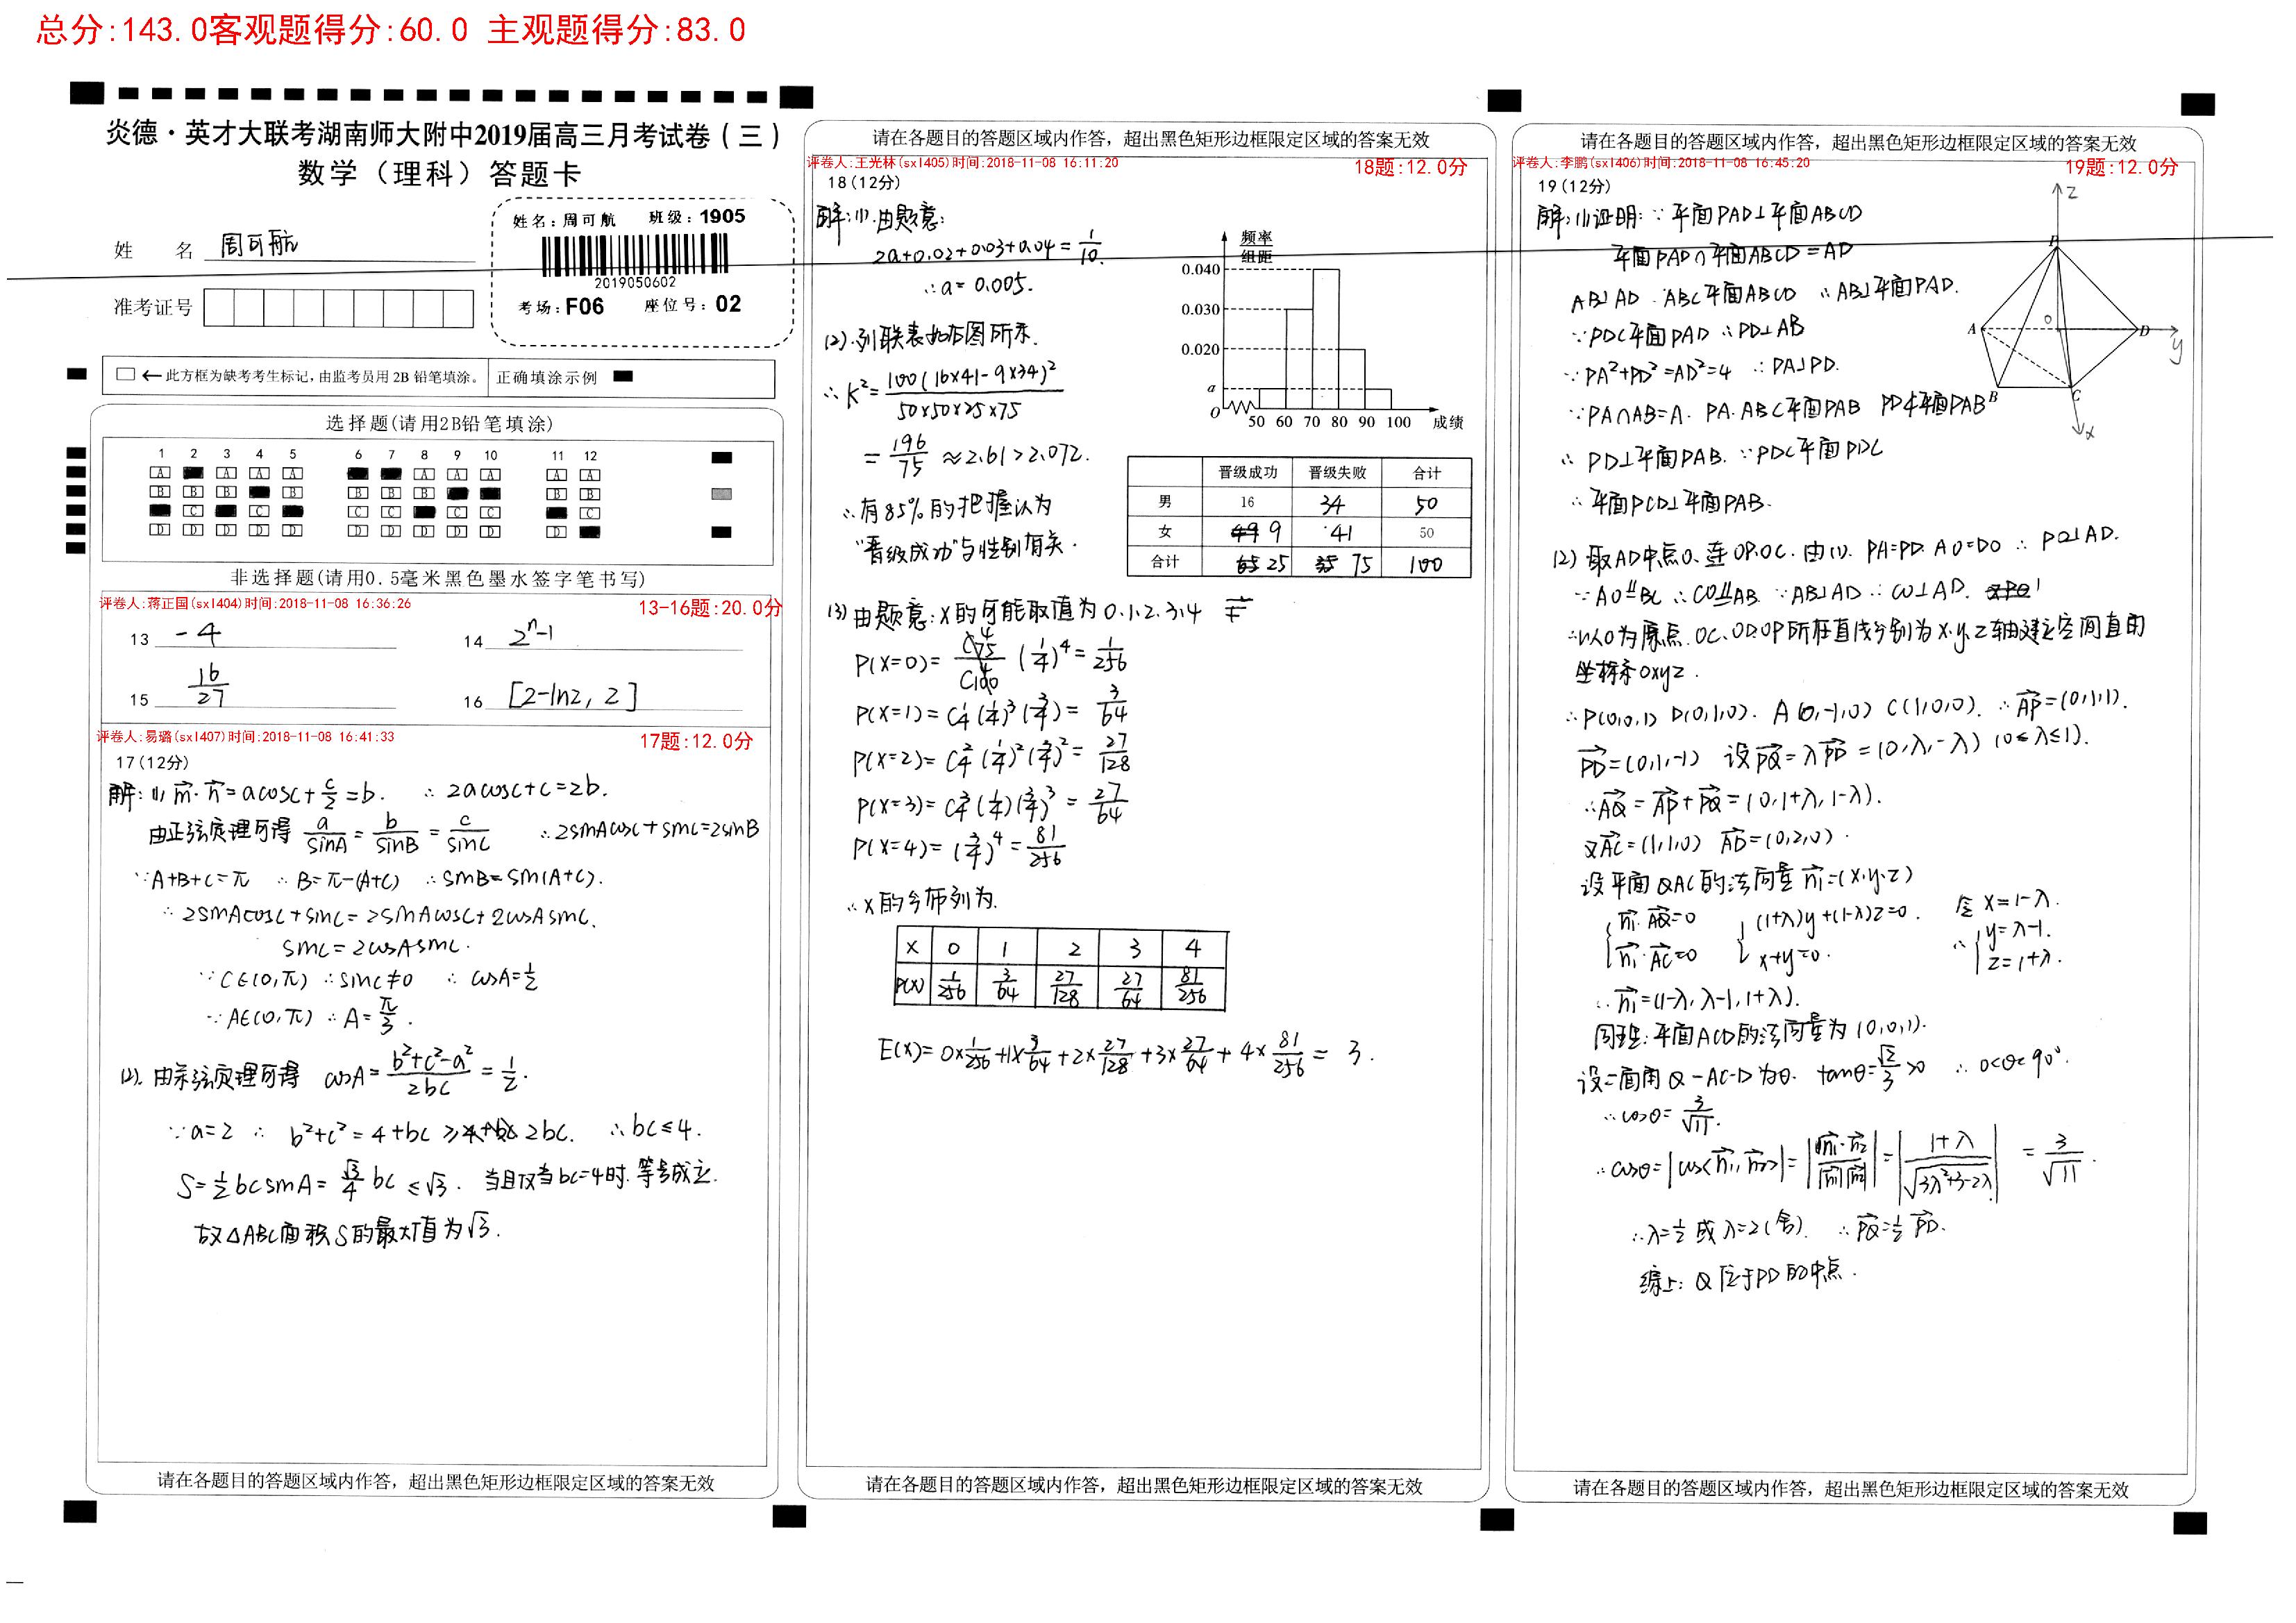 总分:143.0客观题得分:60.0 主观题得分:83.0
炎德·英才大联考湖南师大附中2019届高三月考试卷(三)
数学(理科)答题卡
姓名 周可航
准考证号
姓名:周可航 班级:1905
2019050602
考场:F06 座位号:02
←此方框为缺考考生标记,由监考员用2B铅笔填涂。 正确填涂示例
选择题(请用2B铅笔填涂)
1 2 3 4 5 6 7 8 9 10 11 12
A A A A A A A A A
B B B B B B B B B
C C C C C C C
D D D D D D D D D D D
非选择题(请用0.5毫米黑色墨水签字笔书写)
评卷人:蒋正国(sx1404)时间:2018-11-08 16:36:26 13-16题:20.0分
13 -4 14 2^n-1
15 16/27 16 [2-ln2, 2]
评卷人:易璐(sx1407)时间:2018-11-08 16:41:33 17题:12.0分
17(12分)
解:(1) m·n=acosC+c/2=b. ∴2acosC+c=2b.
由正弦定理可得 a/sinA=b/sinB=c/sinC ∴2sinAcosC+sinC=2sinB
∵A+B+C=π ∴B=π-(A+C) ∴sinB=sin(A+C).
∴2sinAcosC+sinC=2sinAcosC+2cosAsinC.
sinC=2cosAsinC.
∵C∈(0,π) ∴sinC≠0 ∴cosA=1/2
∵A∈(0,π) ∴A=π/3.
(2). 由余弦定理可得 cosA=(b²+c²-a²)/2bc=1/2.
∵a=2 ∴ b²+c²=4+bc≥2bc. ∴bc≤4.
S=1/2bcsinA=√3/4 bc≤√3. 当且仅当bc=4时,等号成立.
故△ABC面积S的最大值为√3.
请在各题目的答题区域内作答,超出黑色矩形边框限定区域的答案无效
请在各题目的答题区域内作答,超出黑色矩形边框限定区域的答案无效
评卷人:王光林(sx1405)时间:2018-11-08 16:11:20 18题:12.0分
18(12分)
解:(1).由题意:
2a+0.02+0.03+0.04=1/10.
∴a=0.005.
频率
组距
0.040
0.030
0.020
a
O 50 60 70 80 90 100 成绩
(2).列联表如右图所示.
∴K²=100(16×41-9×34)²/50×50×25×75
=196/75≈2.61>2.072.
∴有85%的把握认为
"晋级成功"与性别有关.
晋级成功 晋级失败 合计
男 16 34 50
女 9 41 50
合计 25 75 100
(3) 由题意:X的可能取值为0.1.2.3.4
P(X=0)=(1/4)⁴=1/256
P(X=1)=C₄¹(1/4)³(3/4)=3/64
P(X=2)=C₄²(1/4)²(3/4)²=27/128
P(X=3)=C₄³(1/4)(3/4)³=27/64
P(X=4)=(3/4)⁴=81/256
∴X的分布列为.
X 0 1 2 3 4
P(X) 1/256 3/64 27/128 27/64 81/256
E(X)=0×1/256+1×3/64+2×27/128+3×27/64+4×81/256=3.
请在各题目的答题区域内作答,超出黑色矩形边框限定区域的答案无效
请在各题目的答题区域内作答,超出黑色矩形边框限定区域的答案无效
评卷人:李鹏(sx1406)时间:2018-11-08 16:45:20 19题:12.0分
19(12分)
解:(1)证明:∵平面PAD⊥平面ABCD
平面PAD∩平面ABCD=AD
AB⊥AD AB⊂平面ABCD ∴AB⊥平面PAD.
∵PD⊂平面PAD ∴PD⊥AB
∵PA²+PD²=AD²=4 ∴PA⊥PD.
∵PA∩AB=A. PA.AB⊂平面PAB PD⊄平面PAB
∴PD⊥平面PAB. ∵PD⊂平面PDC
∴平面PCD⊥平面PAB.
z P A O D y B C x
(2) 取AD中点O.连OP.OC.由(1). PA=PD. AO=DO ∴PO⊥AD.
∵AO∥BC ∴CO∥AB ∵AB⊥AD ∴CO⊥AD.
∴以O为原点.OC.OD.OP所在直线分别为x.y.z轴建立空间直角
坐标系Oxyz.
∴P(0,0,1) D(0,1,0). A(0,-1,0) C(1,0,0). ∴AP=(0,1,1).
PD=(0,1,-1) 设PQ=λPD=(0,λ,-λ) (0≤λ≤1).
∴AQ=AP+PQ=(0,1+λ,1-λ).
又AC=(1,1,0) AD=(0,2,0).
设平面QAC的法向量n₁=(x,y,z)
n₁·AQ=0 (1+λ)y+(1-λ)z=0. 令x=1-λ.
n₁·AC=0 x+y=0. ∴ y=λ-1.
z=1+λ.
∴n₁=(1-λ,λ-1,1+λ).
同理:平面ACD的法向量为(0,0,1).
设二面角Q-AC-D为θ. tanθ=√2/3>0 ∴0<θ<90°.
∴cosθ=3/√11.
∴cosθ=|cos<n₁,n₂>|=|n₁·n₂/|n₁||n₂||=|1+λ/√(3λ²+3-2λ)|=3/√11.
∴λ=1/2或λ=2(舍). ∴PQ=1/2PD.
综上:Q位于PD的中点.
请在各题目的答题区域内作答,超出黑色矩形边框限定区域的答案无效